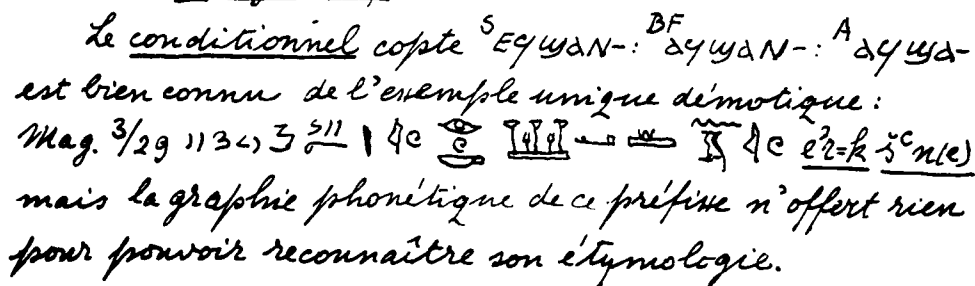 Le conditionnel copte ˢⲈϤϢⲀⲚ-: ᴮꟳⲀϤϢⲀⲚ-: ᴬⲀϤϢⲀ-
est bien connu de l'exemple unique démotique:
Mag. 3/29 e҆r=k šꜥn(e)
mais la graphie phonétique de ce préfixe n'offert rien
pour pouvoir reconnaître son étymologie.